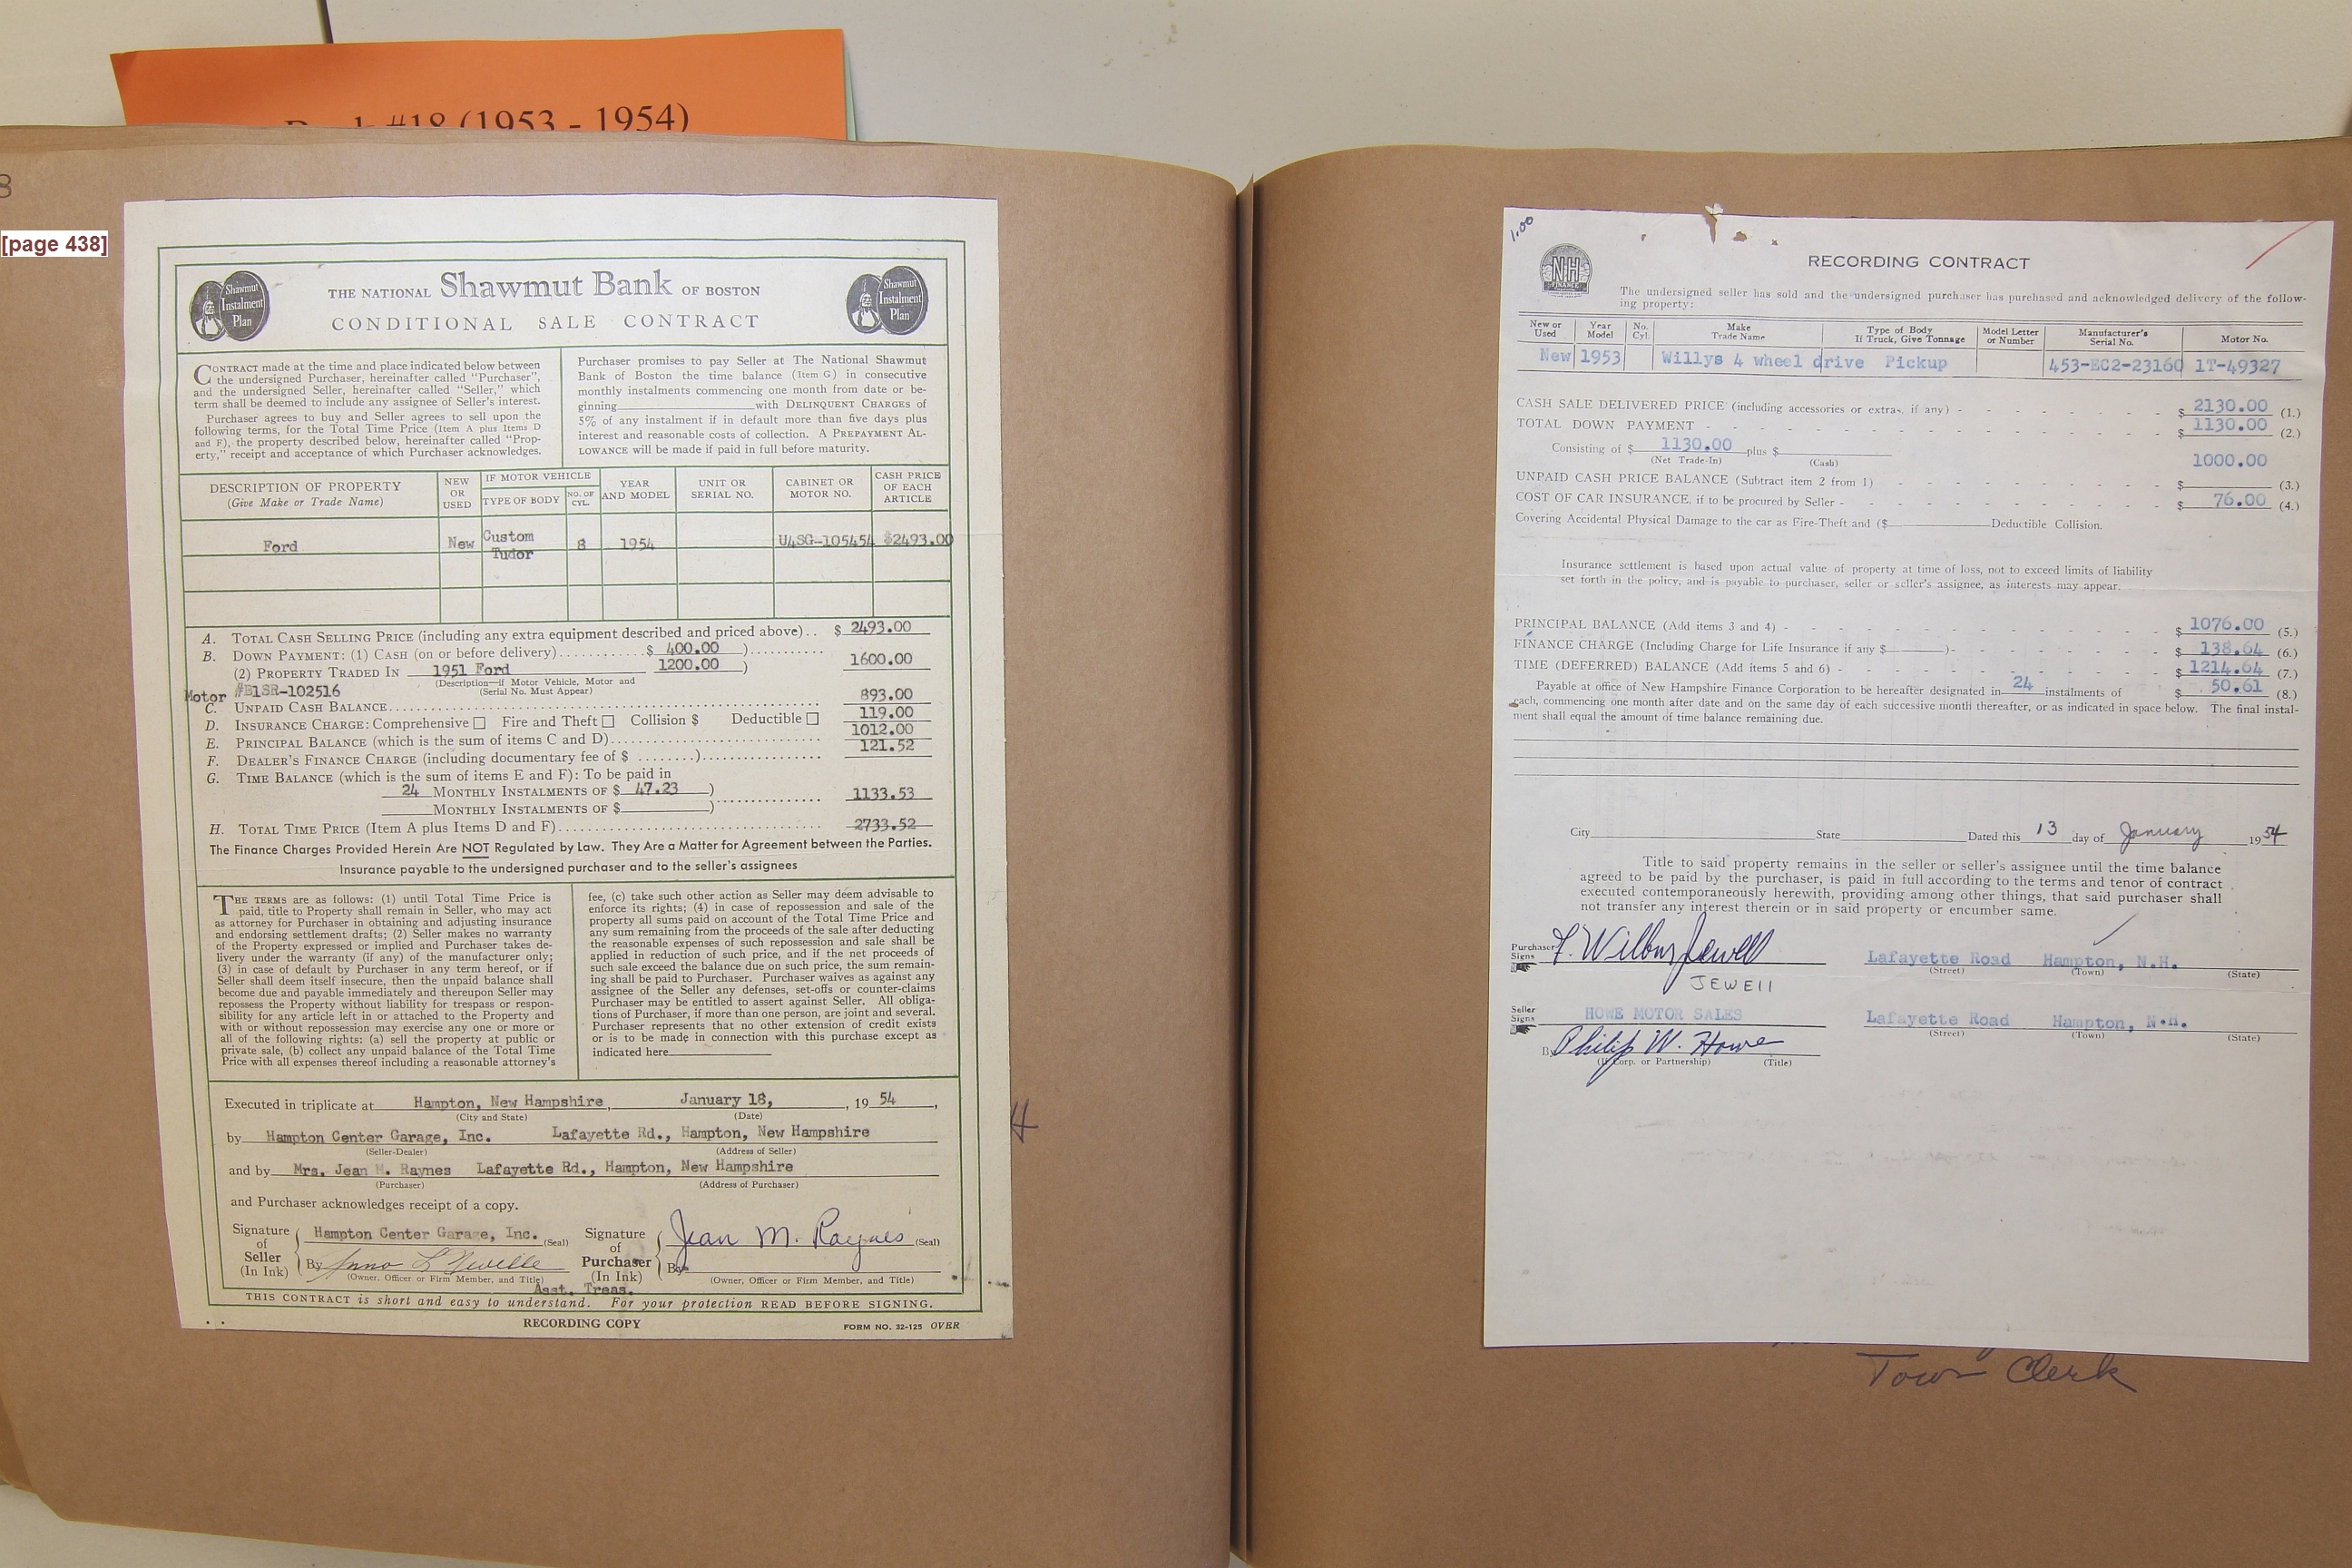 #18 (1953 - 1954)
8
[page 438]
Shawmut Instalment Plan
THE NATIONAL Shawmut Bank OF BOSTON
CONDITIONAL SALE CONTRACT
Shawmut Instalment Plan
CONTRACT made at the time and place indicated below between
the undersigned Purchaser, hereinafter called "Purchaser",
and the undersigned Seller, hereinafter called "Seller," which
term shall be deemed to include any assignee of Seller's interest.
Purchaser agrees to buy and Seller agrees to sell upon the
following terms, for the Total Time Price (Item A plus Items D
and F), the property described below, hereinafter called "Prop-
erty," receipt and acceptance of which Purchaser acknowledges.
Purchaser promises to pay Seller at The National Shawmut
Bank of Boston the time balance (Item G) in consecutive
monthly instalments commencing one month from date or be-
ginning with DELINQUENT CHARGES of
5% of any instalment if in default more than five days plus
interest and reasonable costs of collection. A PREPAYMENT AL-
LOWANCE will be made if paid in full before maturity.
DESCRIPTION OF PROPERTY (Give Make or Trade Name) NEW OR USED IF MOTOR VEHICLE TYPE OF BODY NO. OF CYL. YEAR AND MODEL UNIT OR SERIAL NO. CABINET OR MOTOR NO. CASH PRICE OF EACH ARTICLE
Ford New Custom Tudor 8 1954 U4SG-105454 $2493.00
A. TOTAL CASH SELLING PRICE (including any extra equipment described and priced above).. $ 2493.00
B. DOWN PAYMENT: (1) CASH (on or before delivery)............$ 400.00 )...........
(2) PROPERTY TRADED IN 1951 Ford 1200.00 ) 1600.00
(Description—if Motor Vehicle, Motor and Serial No. Must Appear)
Motor #B1SR-102516
C. UNPAID CASH BALANCE........ 893.00
D. INSURANCE CHARGE: Comprehensive □ Fire and Theft □ Collision $ Deductible □ 119.00
E. PRINCIPAL BALANCE (which is the sum of items C and D)........ 1012.00
F. DEALER'S FINANCE CHARGE (including documentary fee of $ ........)........ 121.52
G. TIME BALANCE (which is the sum of items E and F): To be paid in
24 MONTHLY INSTALMENTS OF $ 47.23 )
MONTHLY INSTALMENTS OF $ )........ 1133.53
H. TOTAL TIME PRICE (Item A plus Items D and F)........ 2733.52
The Finance Charges Provided Herein Are NOT Regulated by Law. They Are a Matter for Agreement between the Parties.
Insurance payable to the undersigned purchaser and to the seller's assignees
THE TERMS are as follows: (1) until Total Time Price is
paid, title to Property shall remain in Seller, who may act
as attorney for Purchaser in obtaining and adjusting insurance
and endorsing settlement drafts; (2) Seller makes no warranty
of the Property expressed or implied and Purchaser takes de-
livery under the warranty (if any) of the manufacturer only;
(3) in case of default by Purchaser in any term hereof, or if
Seller shall deem itself insecure, then the unpaid balance shall
become due and payable immediately and thereupon Seller may
repossess the Property without liability for trespass or respon-
sibility for any article left in or attached to the Property and
with or without repossession may exercise any one or more or
all of the following rights: (a) sell the property at public or
private sale, (b) collect any unpaid balance of the Total Time
Price with all expenses thereof including a reasonable attorney's
fee, (c) take such other action as Seller may deem advisable to
enforce its rights; (4) in case of repossession and sale of the
property all sums paid on account of the Total Time Price and
any sum remaining from the proceeds of the sale after deducting
the reasonable expenses of such repossession and sale shall be
applied in reduction of such price, and if the net proceeds of
such sale exceed the balance due on such price, the sum remain-
ing shall be paid to Purchaser. Purchaser waives as against any
assignee of the Seller any defenses, set-offs or counter-claims
Purchaser may be entitled to assert against Seller. All obliga-
tions of Purchaser, if more than one person, are joint and several.
Purchaser represents that no other extension of credit exists
or is to be made in connection with this purchase except as
indicated here
Executed in triplicate at Hampton, New Hampshire, January 18, , 19 54,
(City and State) (Date)
by Hampton Center Garage, Inc. Lafayette Rd., Hampton, New Hampshire
(Seller-Dealer) (Address of Seller)
and by Mrs. Jean M. Raynes Lafayette Rd., Hampton, New Hampshire
(Purchaser) (Address of Purchaser)
and Purchaser acknowledges receipt of a copy.
Signature of Seller (In Ink) Hampton Center Garage, Inc. (Seal) Signature of Purchaser (In Ink) Jean M. Raynes (Seal)
By Anna L Neville By
(Owner, Officer or Firm Member, and Title) (Owner, Officer or Firm Member, and Title)
Asst. Treas.
THIS CONTRACT is short and easy to understand. For your protection READ BEFORE SIGNING.
RECORDING COPY FORM NO. 32-125 OVER
1.00
NH FINANCE
RECORDING CONTRACT
The undersigned seller has sold and the undersigned purchaser has purchased and acknowledged delivery of the follow-
ing property:
New or Used Year Model No. Cyl. Make Trade Name Type of Body If Truck, Give Tonnage Model Letter or Number Manufacturer's Serial No. Motor No.
New 1953 Willys 4 wheel drive Pickup 453-EC2-23160 1T-49327
CASH SALE DELIVERED PRICE (including accessories or extras, if any) - $ 2130.00 (1.)
TOTAL DOWN PAYMENT - $ 1130.00 (2.)
Consisting of $ 1130.00 plus $
(Net Trade-In) (Cash)
1000.00
UNPAID CASH PRICE BALANCE (Subtract item 2 from 1) - $ (3.)
COST OF CAR INSURANCE, if to be procured by Seller - $ 76.00 (4.)
Covering Accidental Physical Damage to the car as Fire-Theft and ($ Deductible Collision.
Insurance settlement is based upon actual value of property at time of loss, not to exceed limits of liability
set forth in the policy, and is payable to purchaser, seller or seller's assignee, as interests may appear.
PRINCIPAL BALANCE (Add items 3 and 4) - $ 1076.00 (5.)
FINANCE CHARGE (Including Charge for Life Insurance if any $ )- $ 138.64 (6.)
TIME (DEFERRED) BALANCE (Add items 5 and 6) - $ 1214.64 (7.)
Payable at office of New Hampshire Finance Corporation to be hereafter designated in 24 instalments of $ 50.61 (8.)
each, commencing one month after date and on the same day of each successive month thereafter, or as indicated in space below. The final instal-
ment shall equal the amount of time balance remaining due.
City State Dated this 13 day of January 1954
Title to said property remains in the seller or seller's assignee until the time balance
agreed to be paid by the purchaser, is paid in full according to the terms and tenor of contract
executed contemporaneously herewith, providing among other things, that said purchaser shall
not transfer any interest therein or in said property or encumber same.
Purchaser Signs F. Wilbur Jewell Lafayette Road Hampton, N.H.
(Street) (Town) (State)
JEWEll
Seller Signs HOWE MOTOR SALES Lafayette Road Hampton, N.H.
(Street) (Town) (State)
By Philip W. Howe
(If Corp. or Partnership) (Title)
Town Clerk